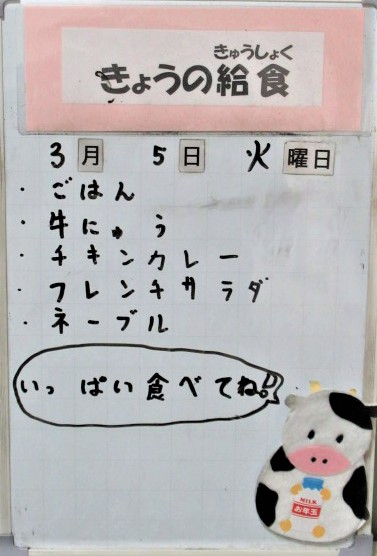 きゅうしょく
きょうの給食
3月 5日 火曜日
・ごはん
・牛にゅう
・チキンカレー
・フレンチサラダ
・ネーブル
いっぱい食べてね!!
MILK
お年玉